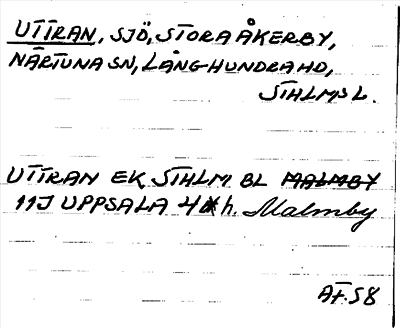 UTTRAN, SJÖ, STORA ÅKERBY,
NÄRTUNA SN, LÅNGHUNDRA HD,
STHLMS L.
UTTRAN EK STHLM BL MALMBY
11J UPPSALA 4 h. Malmby
ÅF.58